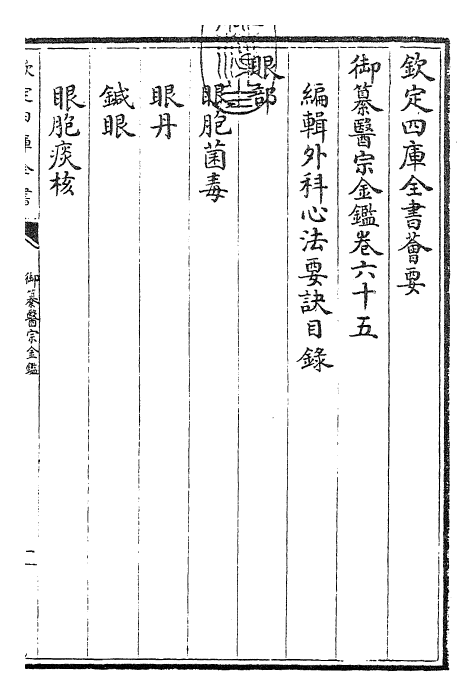 欽定四庫全書薈要
御纂醫宗金鑑卷六十五
編輯外科心法要訣目錄
眼部
眼胞菌毒
眼丹
鍼眼
眼胞痰核
欽定四庫全書
御纂醫宗金鑑